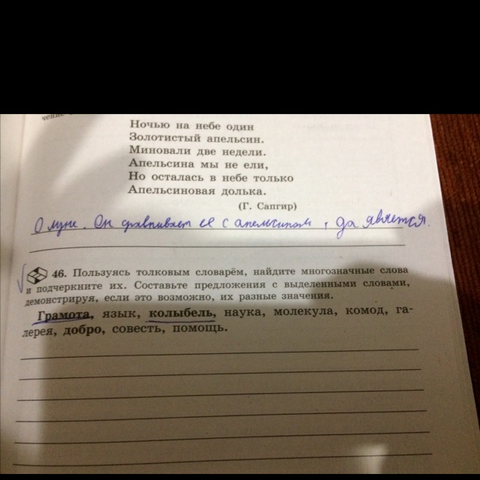 Ночью на небе один
Золотистый апельсин.
Миновали две недели.
Апельсина мы не ели,
Но осталась в небе только
Апельсиновая долька.
(Г. Сапгир)
О луне. Он сравнивает её с апельсином, да является.
46. Пользуясь толковым словарём, найдите многозначные слова
и подчеркните их. Составьте предложения с выделенными словами,
демонстрируя, если это возможно, их разные значения.
Грамота, язык, колыбель, наука, молекула, комод, га-
лерея, добро, совесть, помощь.